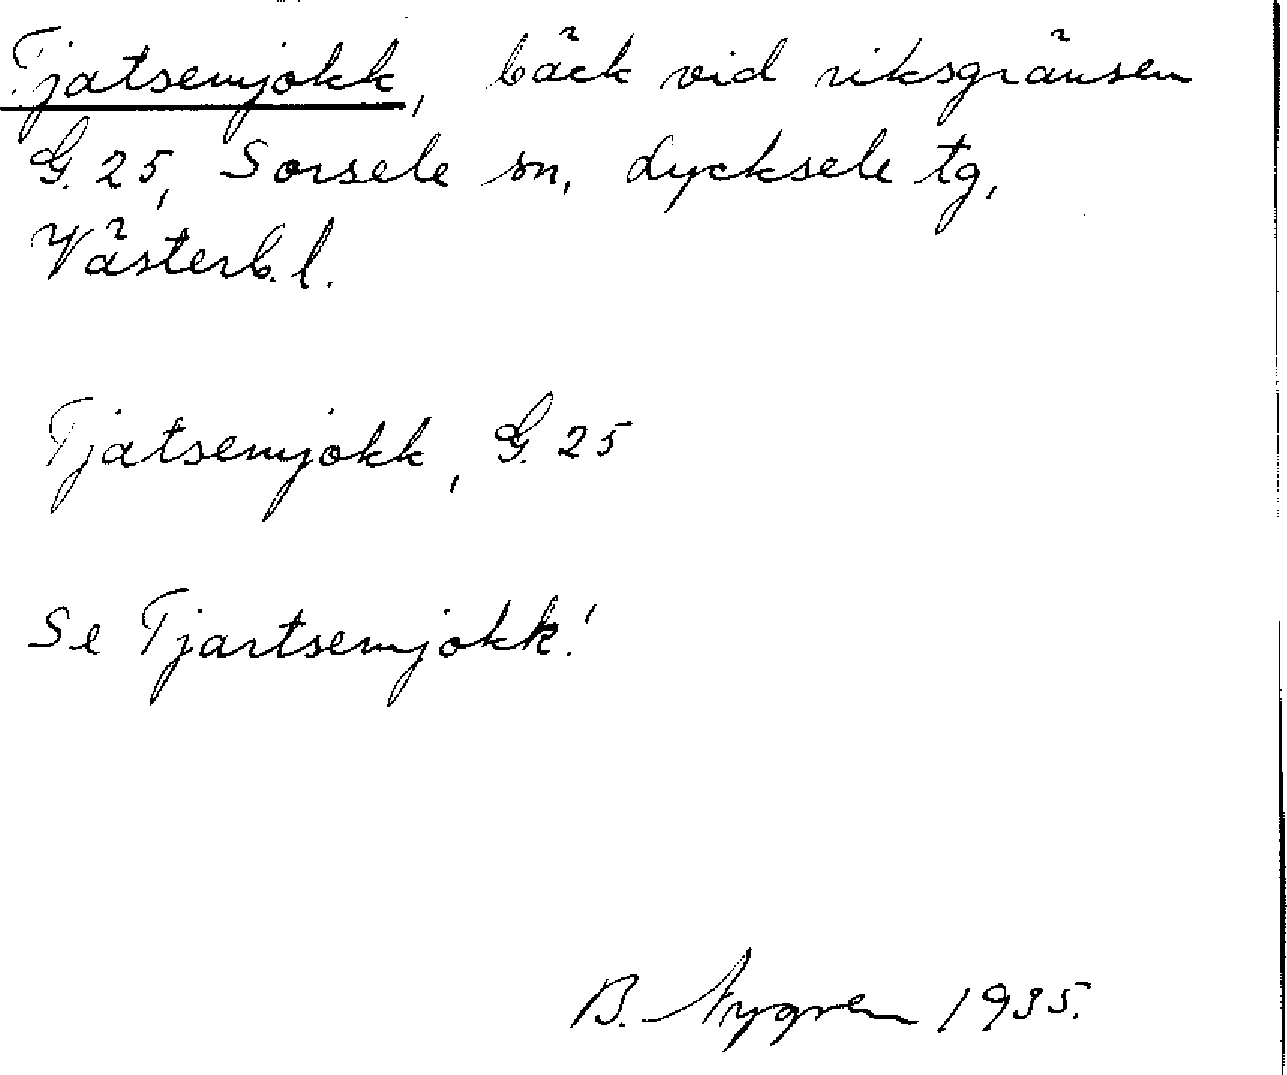 Tjatsemjokk, bäck vid riksgränsen
G. 25, Sorsele sn, Lycksele tg,
Västerb. l.
Tjatsemjokk, G. 25
Se Tjartsemjokk!
B. Nygren 1935.